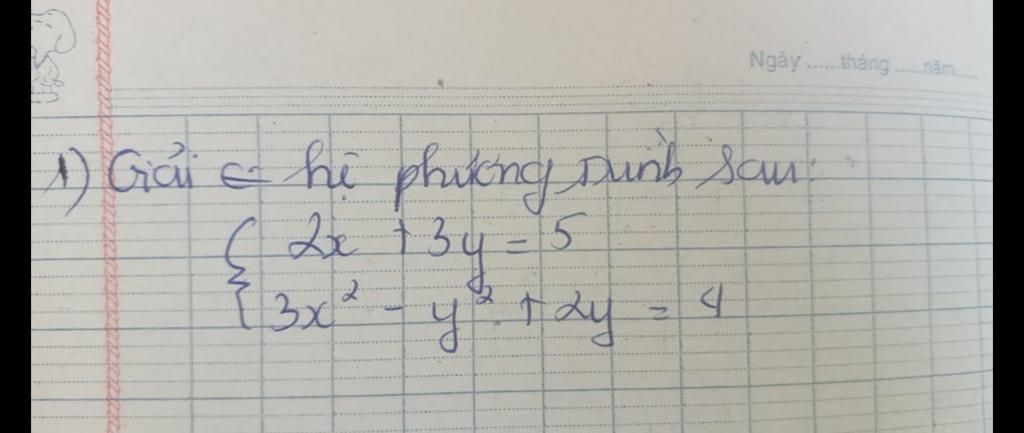 Ngày ......tháng ......năm......
1) Giải hệ phương trình sau:
{ 2x + 3y = 5
3x² - y² + 2y = 4